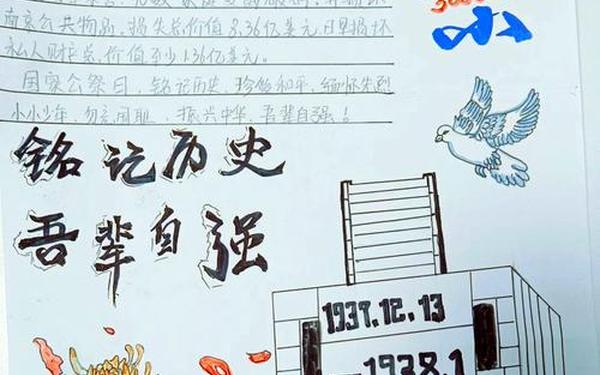 南京公共物品，损失总价值2.36亿美元，日军损坏
私人财产总价值至少1.36亿美元。
国家公祭日，铭记历史，珍惜和平，缅怀先烈
小小少年，勿忘国耻，振兴中华，吾辈自强！
铭记历史
吾辈自强
小
1937.12.13
—1938.1